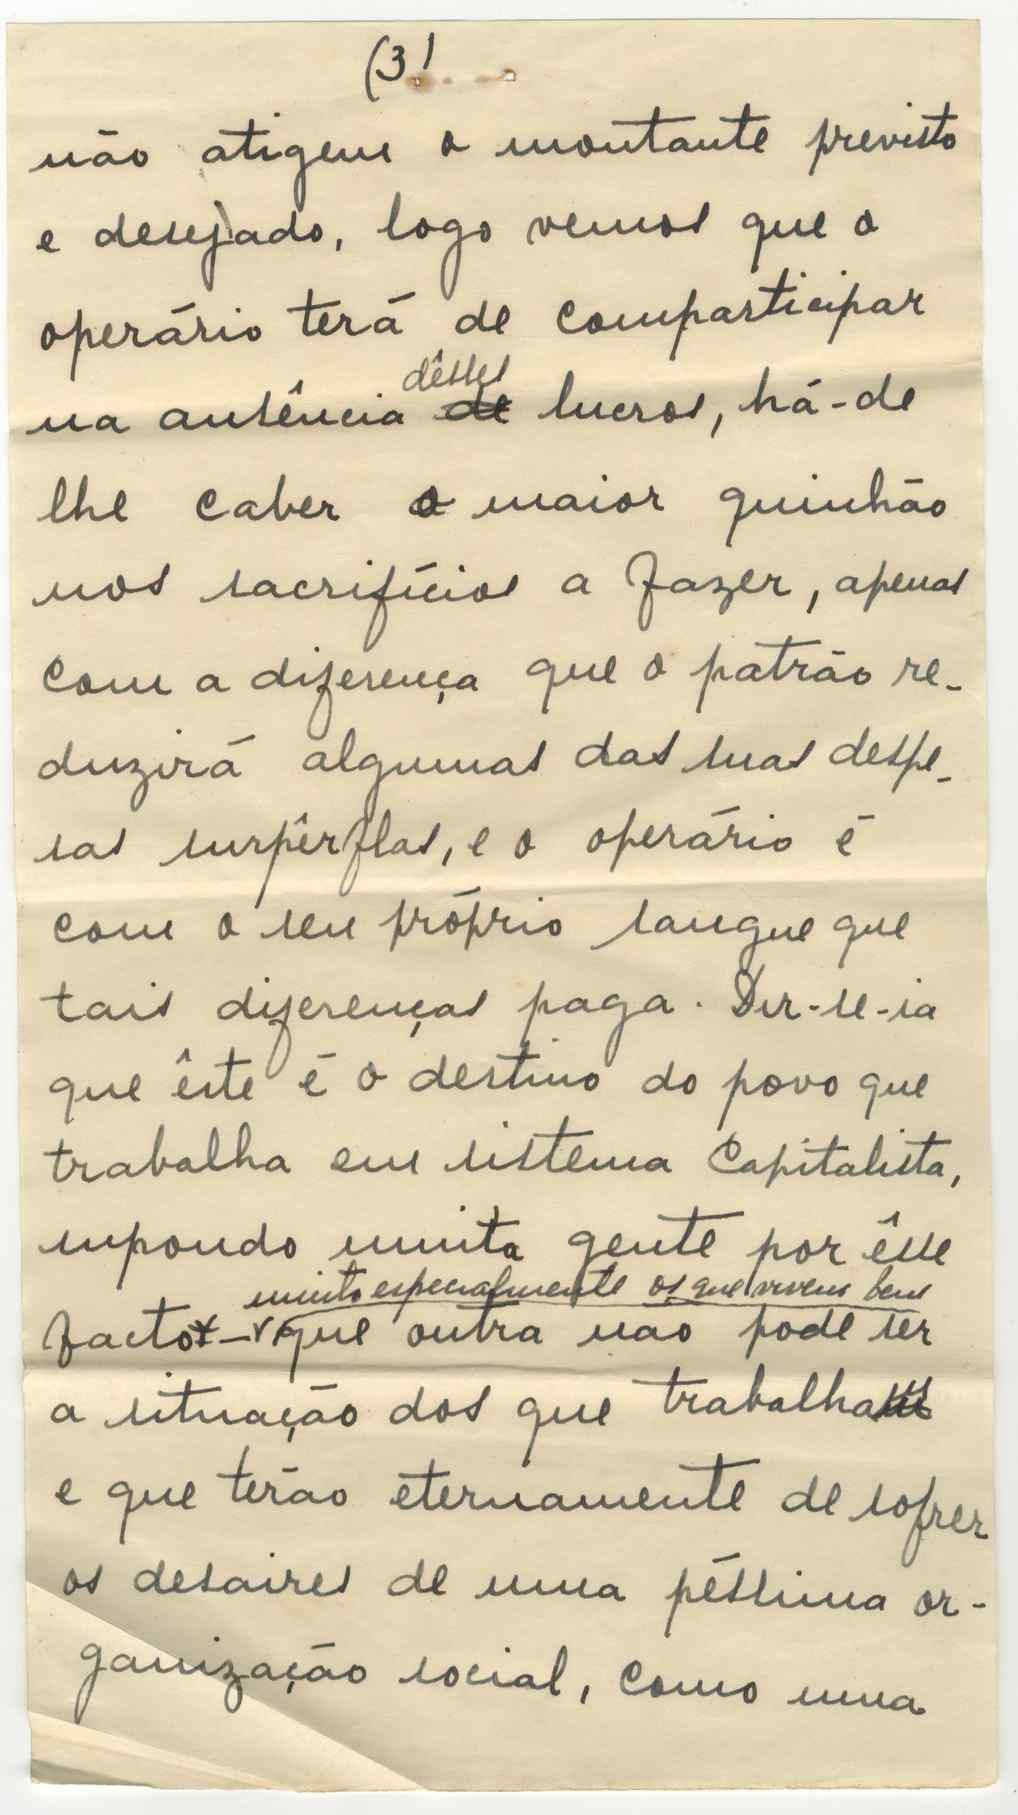 (3)
não atigem o montante previsto
e desejado, logo vemos que o
operário terá de comparticipar
dêsses
na ausência de lucros, há-de
lhe caber o maior quinhão
nos sacrifícios a fazer, apenas
com a diferença que o patrão re-
duzirá algumas das suas despe-
sas surpêrflas, e o operário é
com o seu próprio sangue que
tais diferenças paga. Dir-se-ia
que êste é o destino do povo que
trabalha em sistema Capitalista,
supondo muita gente por êsse
muito especialmente os que vivem bem
facto - que outra não pode ser
a situação dos que trabalham
e que terão eternamente de sofrer
os desaires de uma péssima or-
ganização social, como uma